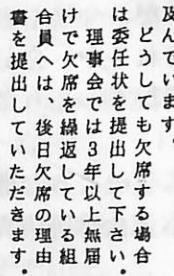 及んでいます。
どうしても欠席する場合
は委任状を提出して下さい。
理事会では3年以上無届
けで欠席を繰返している組
合員へは、後日欠席の理由
書を提出していただきます。